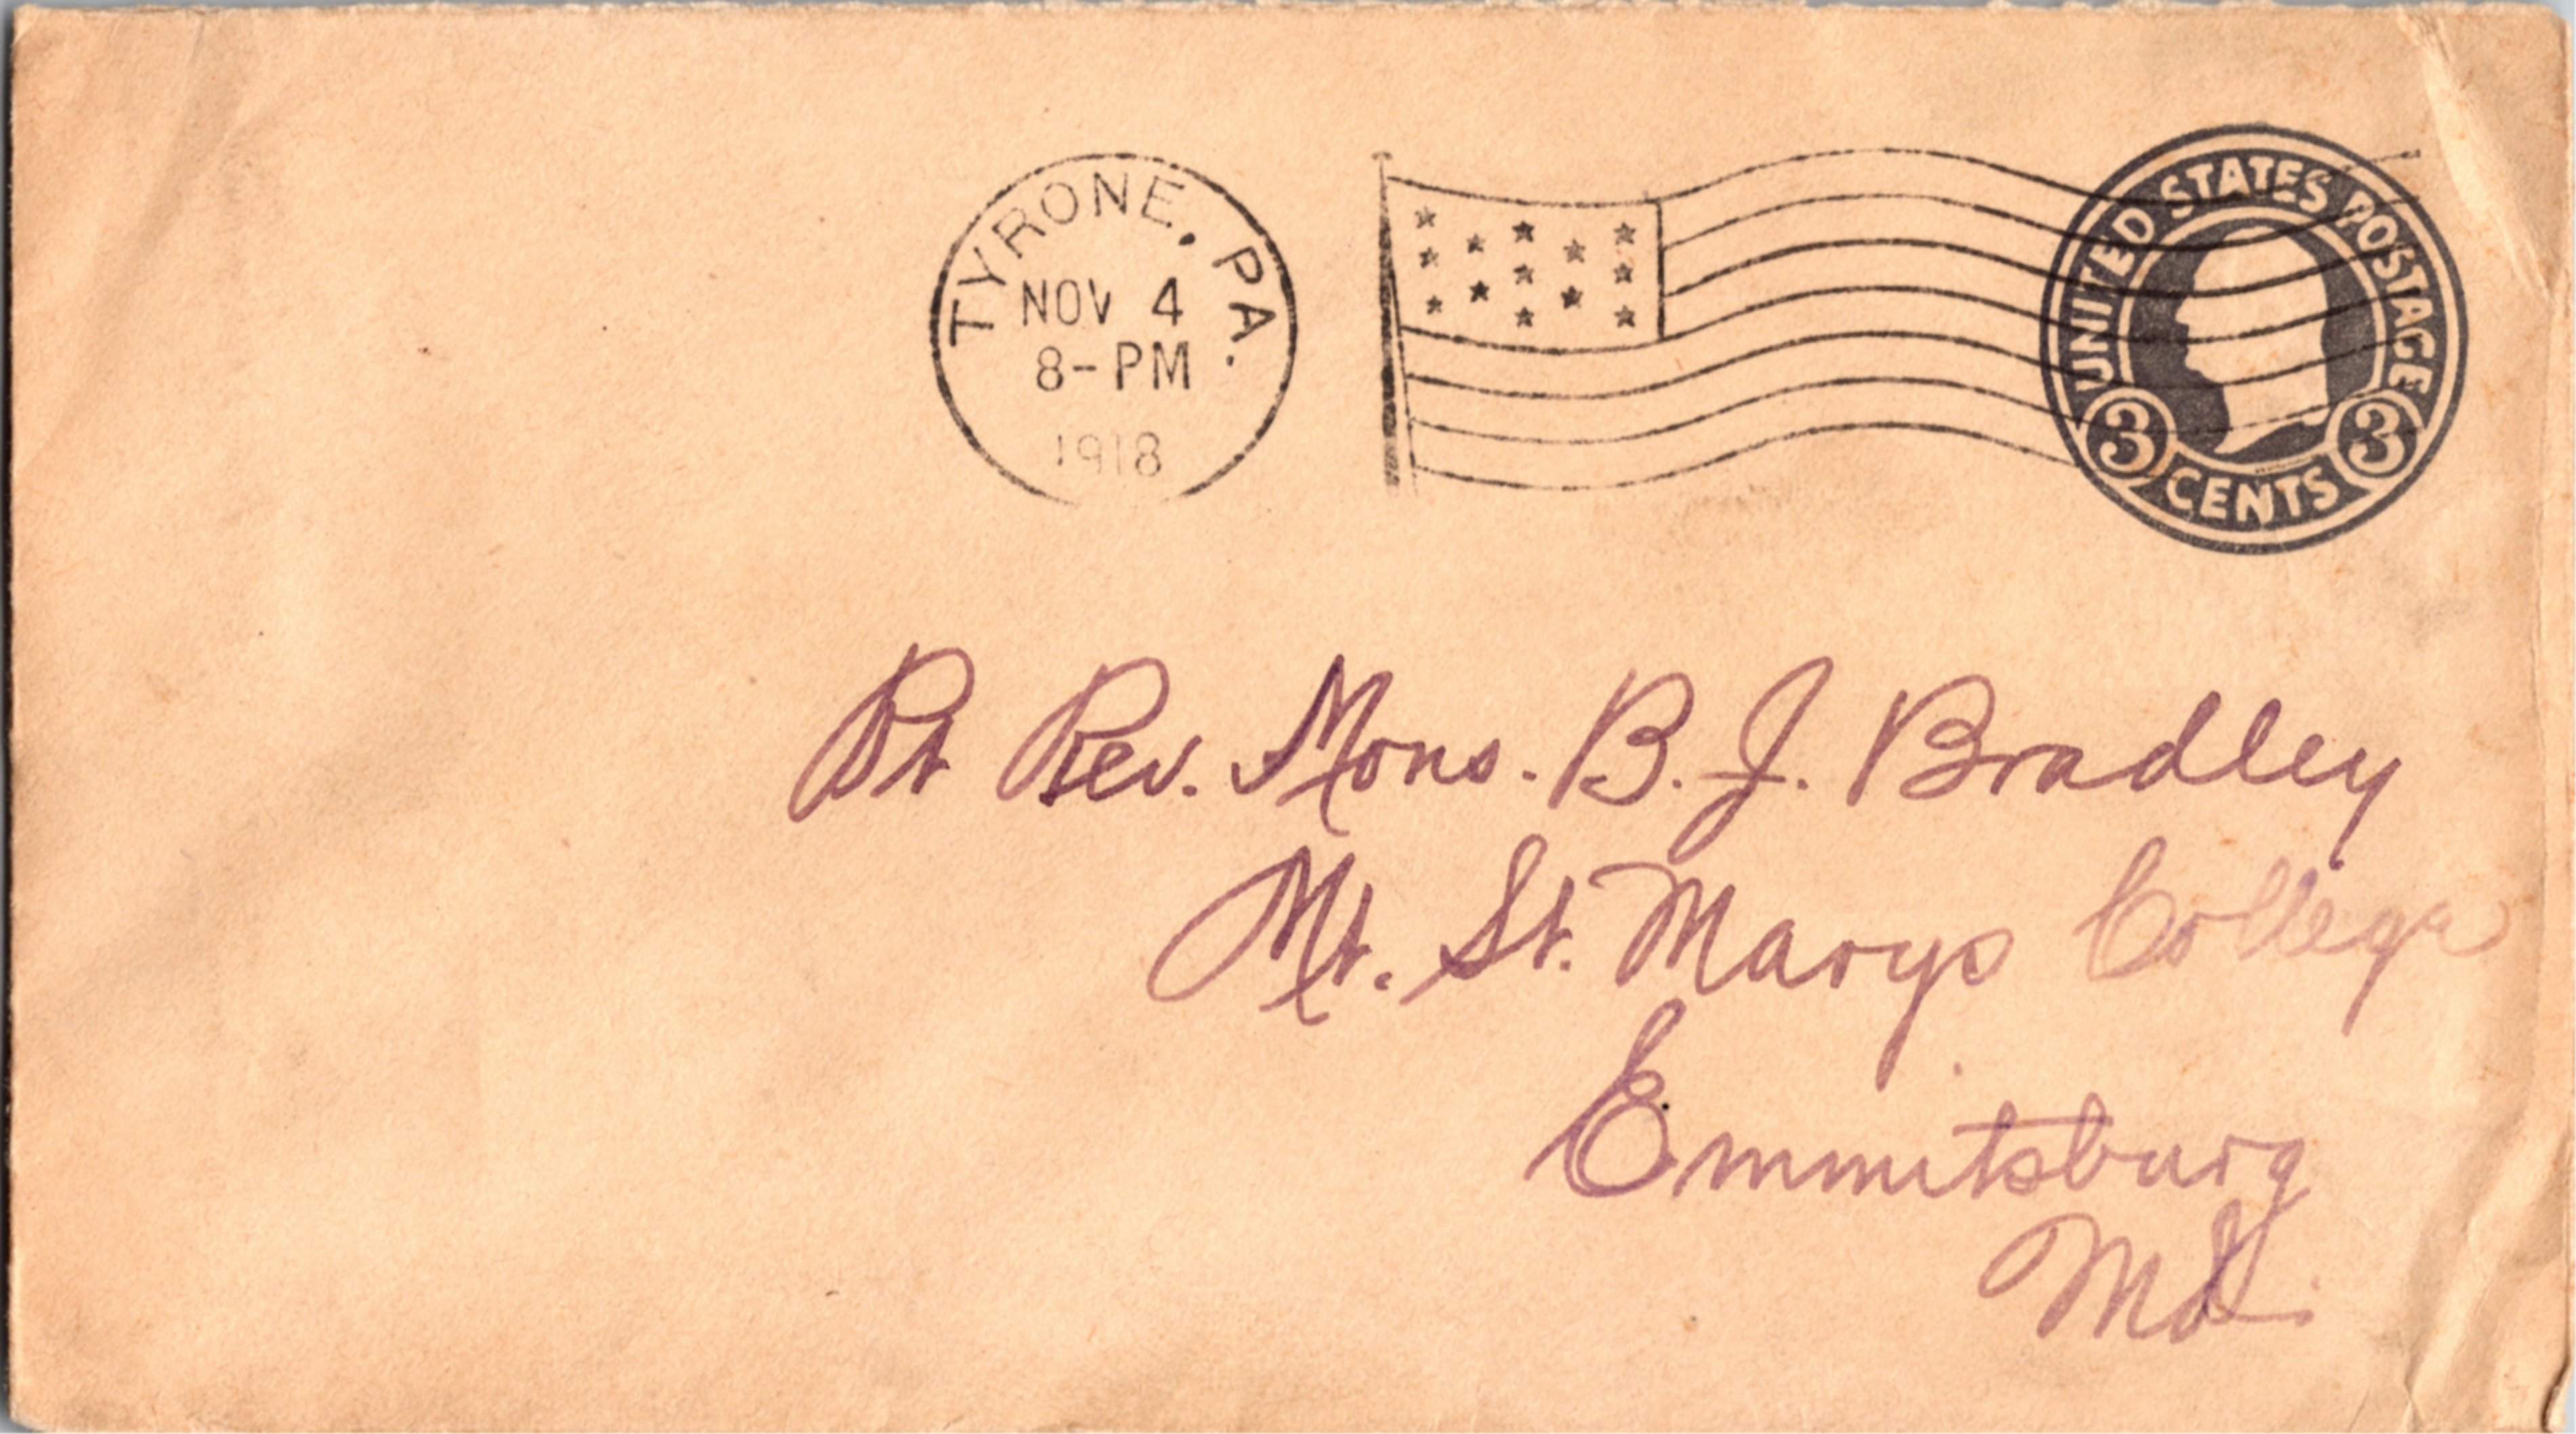 TYRONE, PA.
NOV 4
8-PM
1918
UNITED STATES POSTAGE
3 CENTS 3
Rt Rev. Mons. B. J. Bradley
Mt. St. Marys College
Emmitsburg
Md.